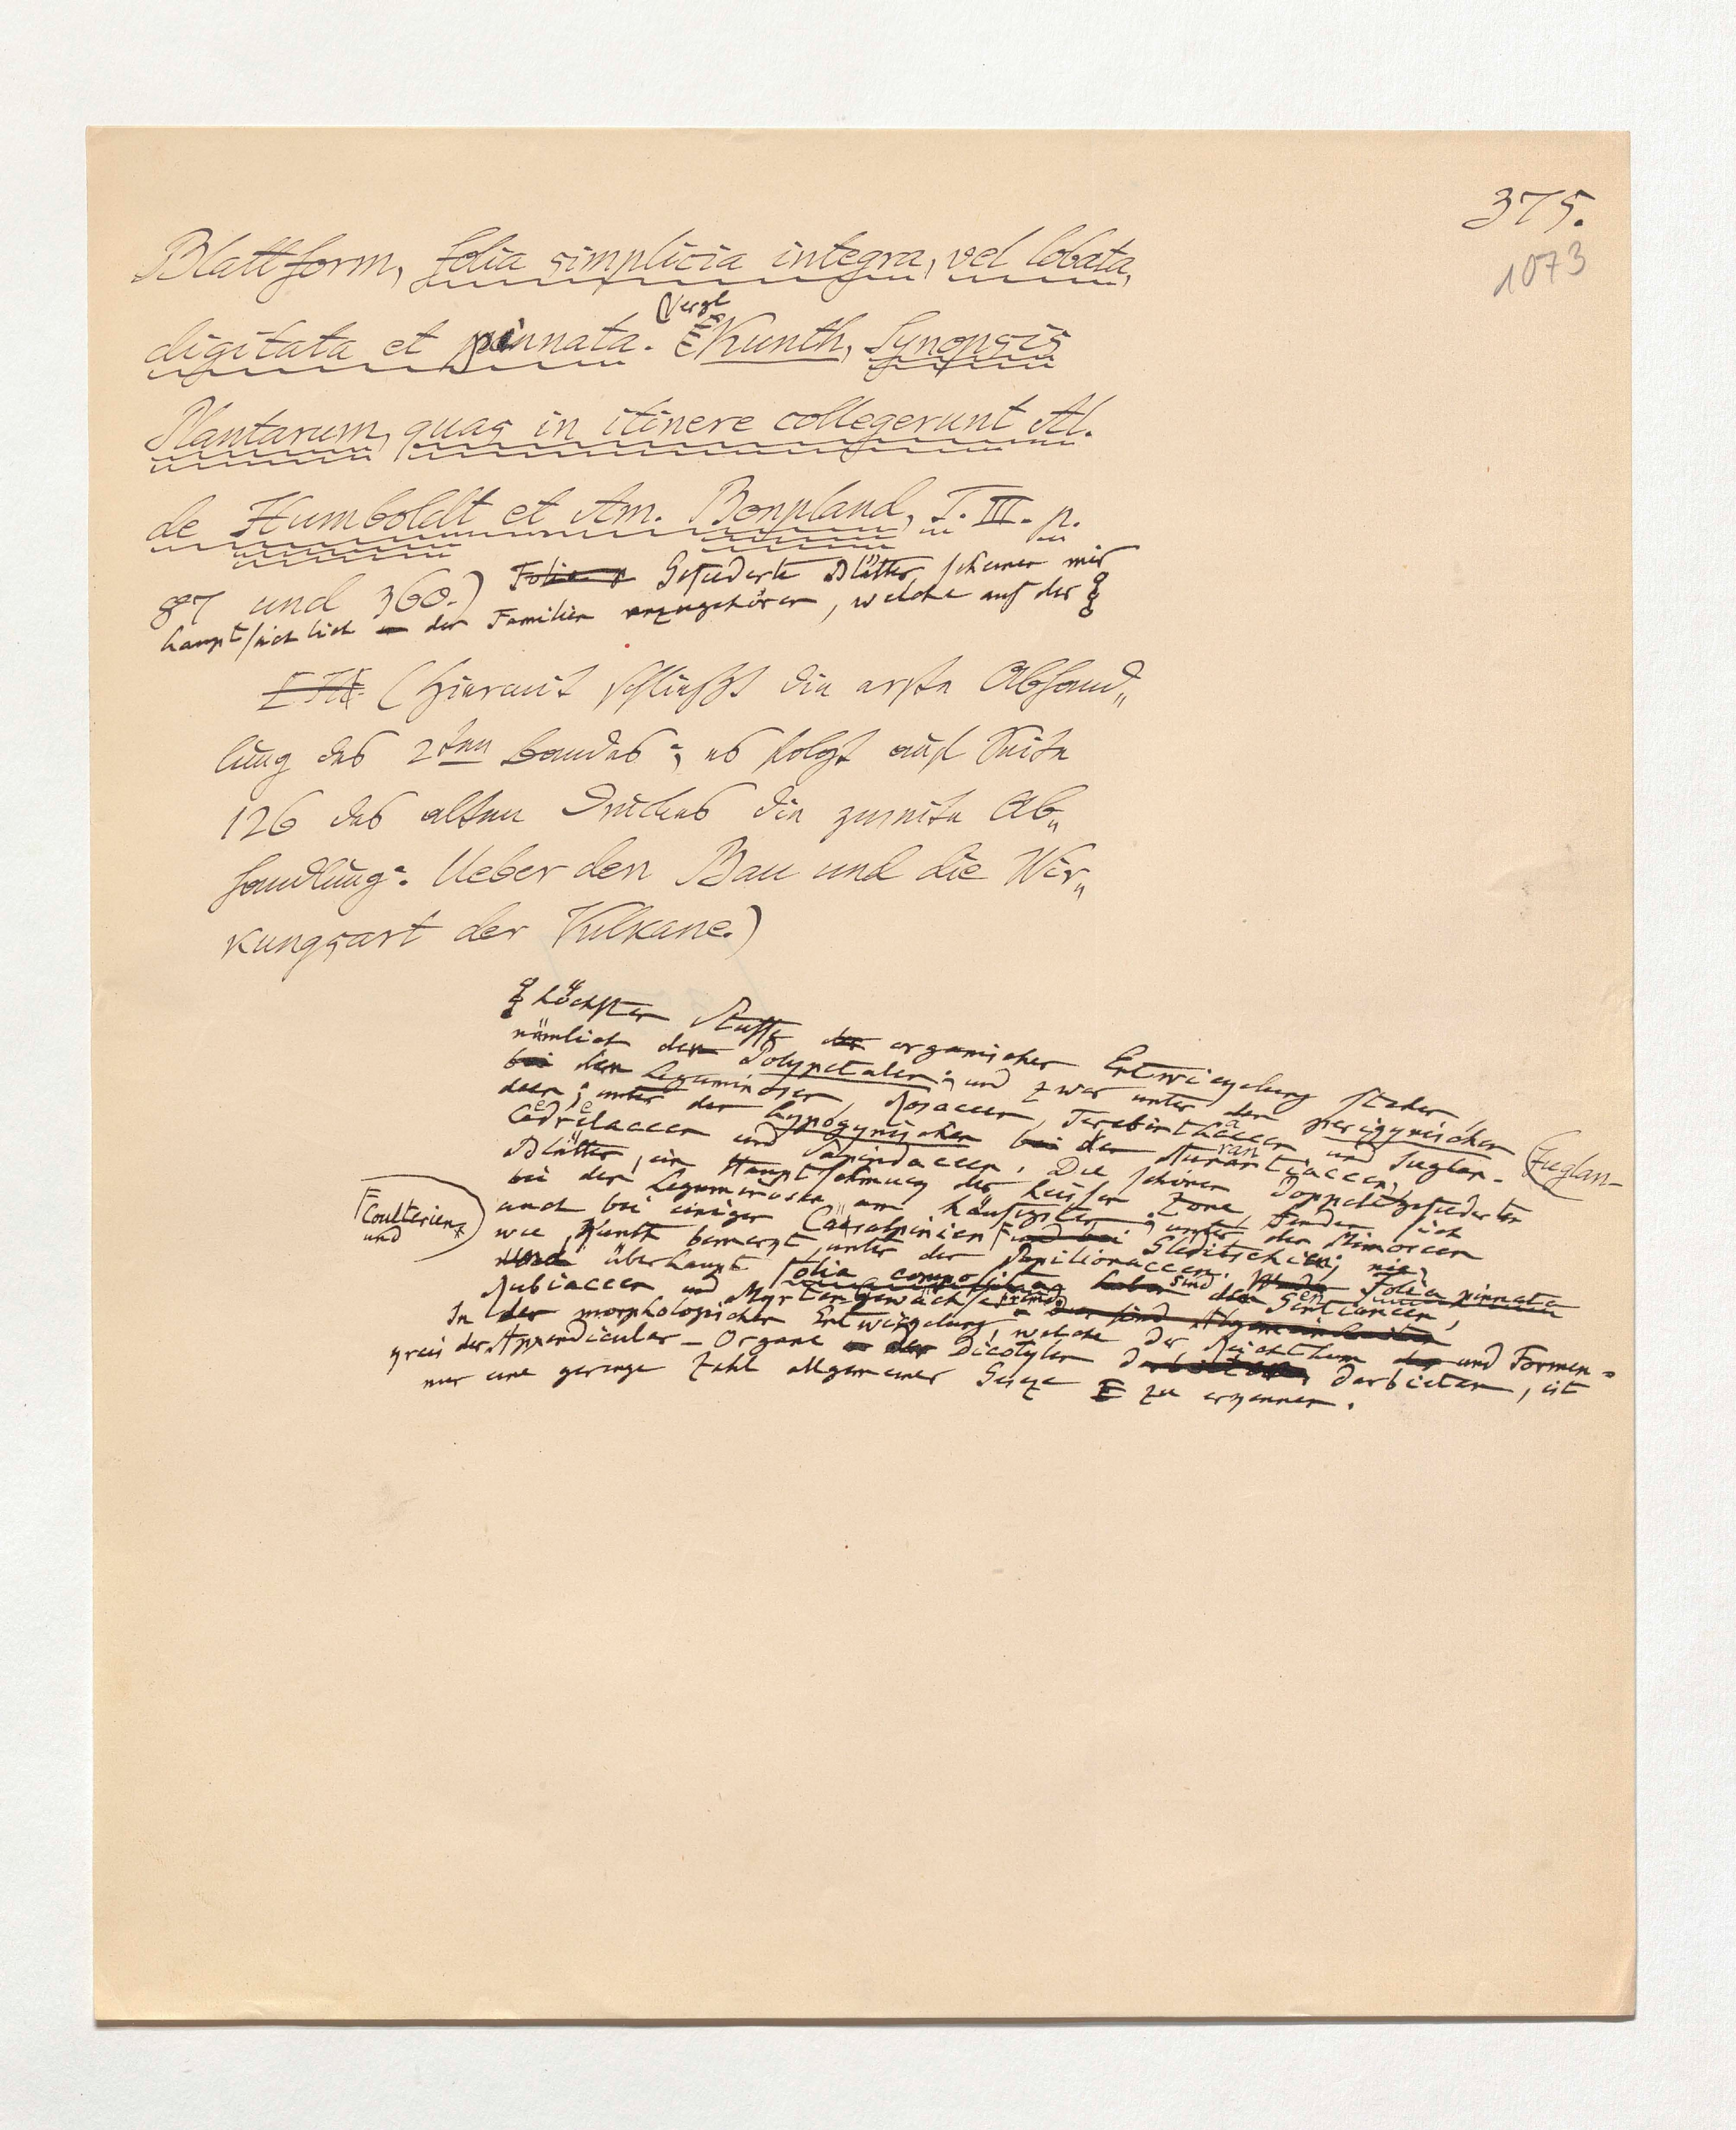 375.
1073
Blattform, folia simplicia integra, vel lobata,
digitata et pinnata. (Vergl Kunth, Synopsis
Plantarum, quas in itinere collegerunt Al.
de Humboldt et Am. Bonpland, T. III. p.
87 und 360.) Folia p Gefiederte Blätter scheinen mir
hauptsächlich den Familien anzugehören, welche auf der
(Hiermit schließt die erste Abhand„
lung des 2ten Bandes; es folgt auf Seite
126 des alten Druckes die zweite Ab„
handlung: Ueber den Bau und die Wir„
kungsart der Vulkane.)
höchsten Stuffe der organischen Entwickelung stehen
nämlich den Polypetalen; und zwar unter den perigynischen
bei den Leguminosen, Rosaceen, Terebinthaceen und Juglan- (Juglan-
deen; unter den hypogynischen bei den Aurantiaceen,
Cedrelaceen und Sapindaceen. Die schönen Doppeltgefiederten
Blätter, ein Hauptschmuck der heißen Zone, finden sich
bei den Leguminosen am häufigsten, unter den Mimoseen
auch bei einigen Caesalpinien und bei Gleditschien; nie,
Coulterien
und
wie Kunth bemerkt, unter den Papilionaceen. Folia pinnata
und überhaupt folia composita haben sind den Gentianeen,
Rubiaceen und Myrtengewächsen fremd.
In der morphologischen Entwickelung, welche der Reichthum der und Formen-
kreis der Appendicular-Organe der Dicotylen darbieten, ist
nur eine geringe Zahl allgemeiner Geseze zu erkennen.